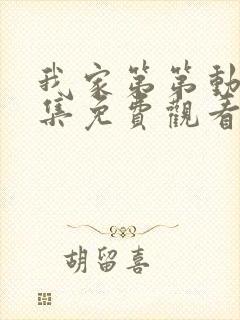 我家第第動
集免費觀看
胡留喜